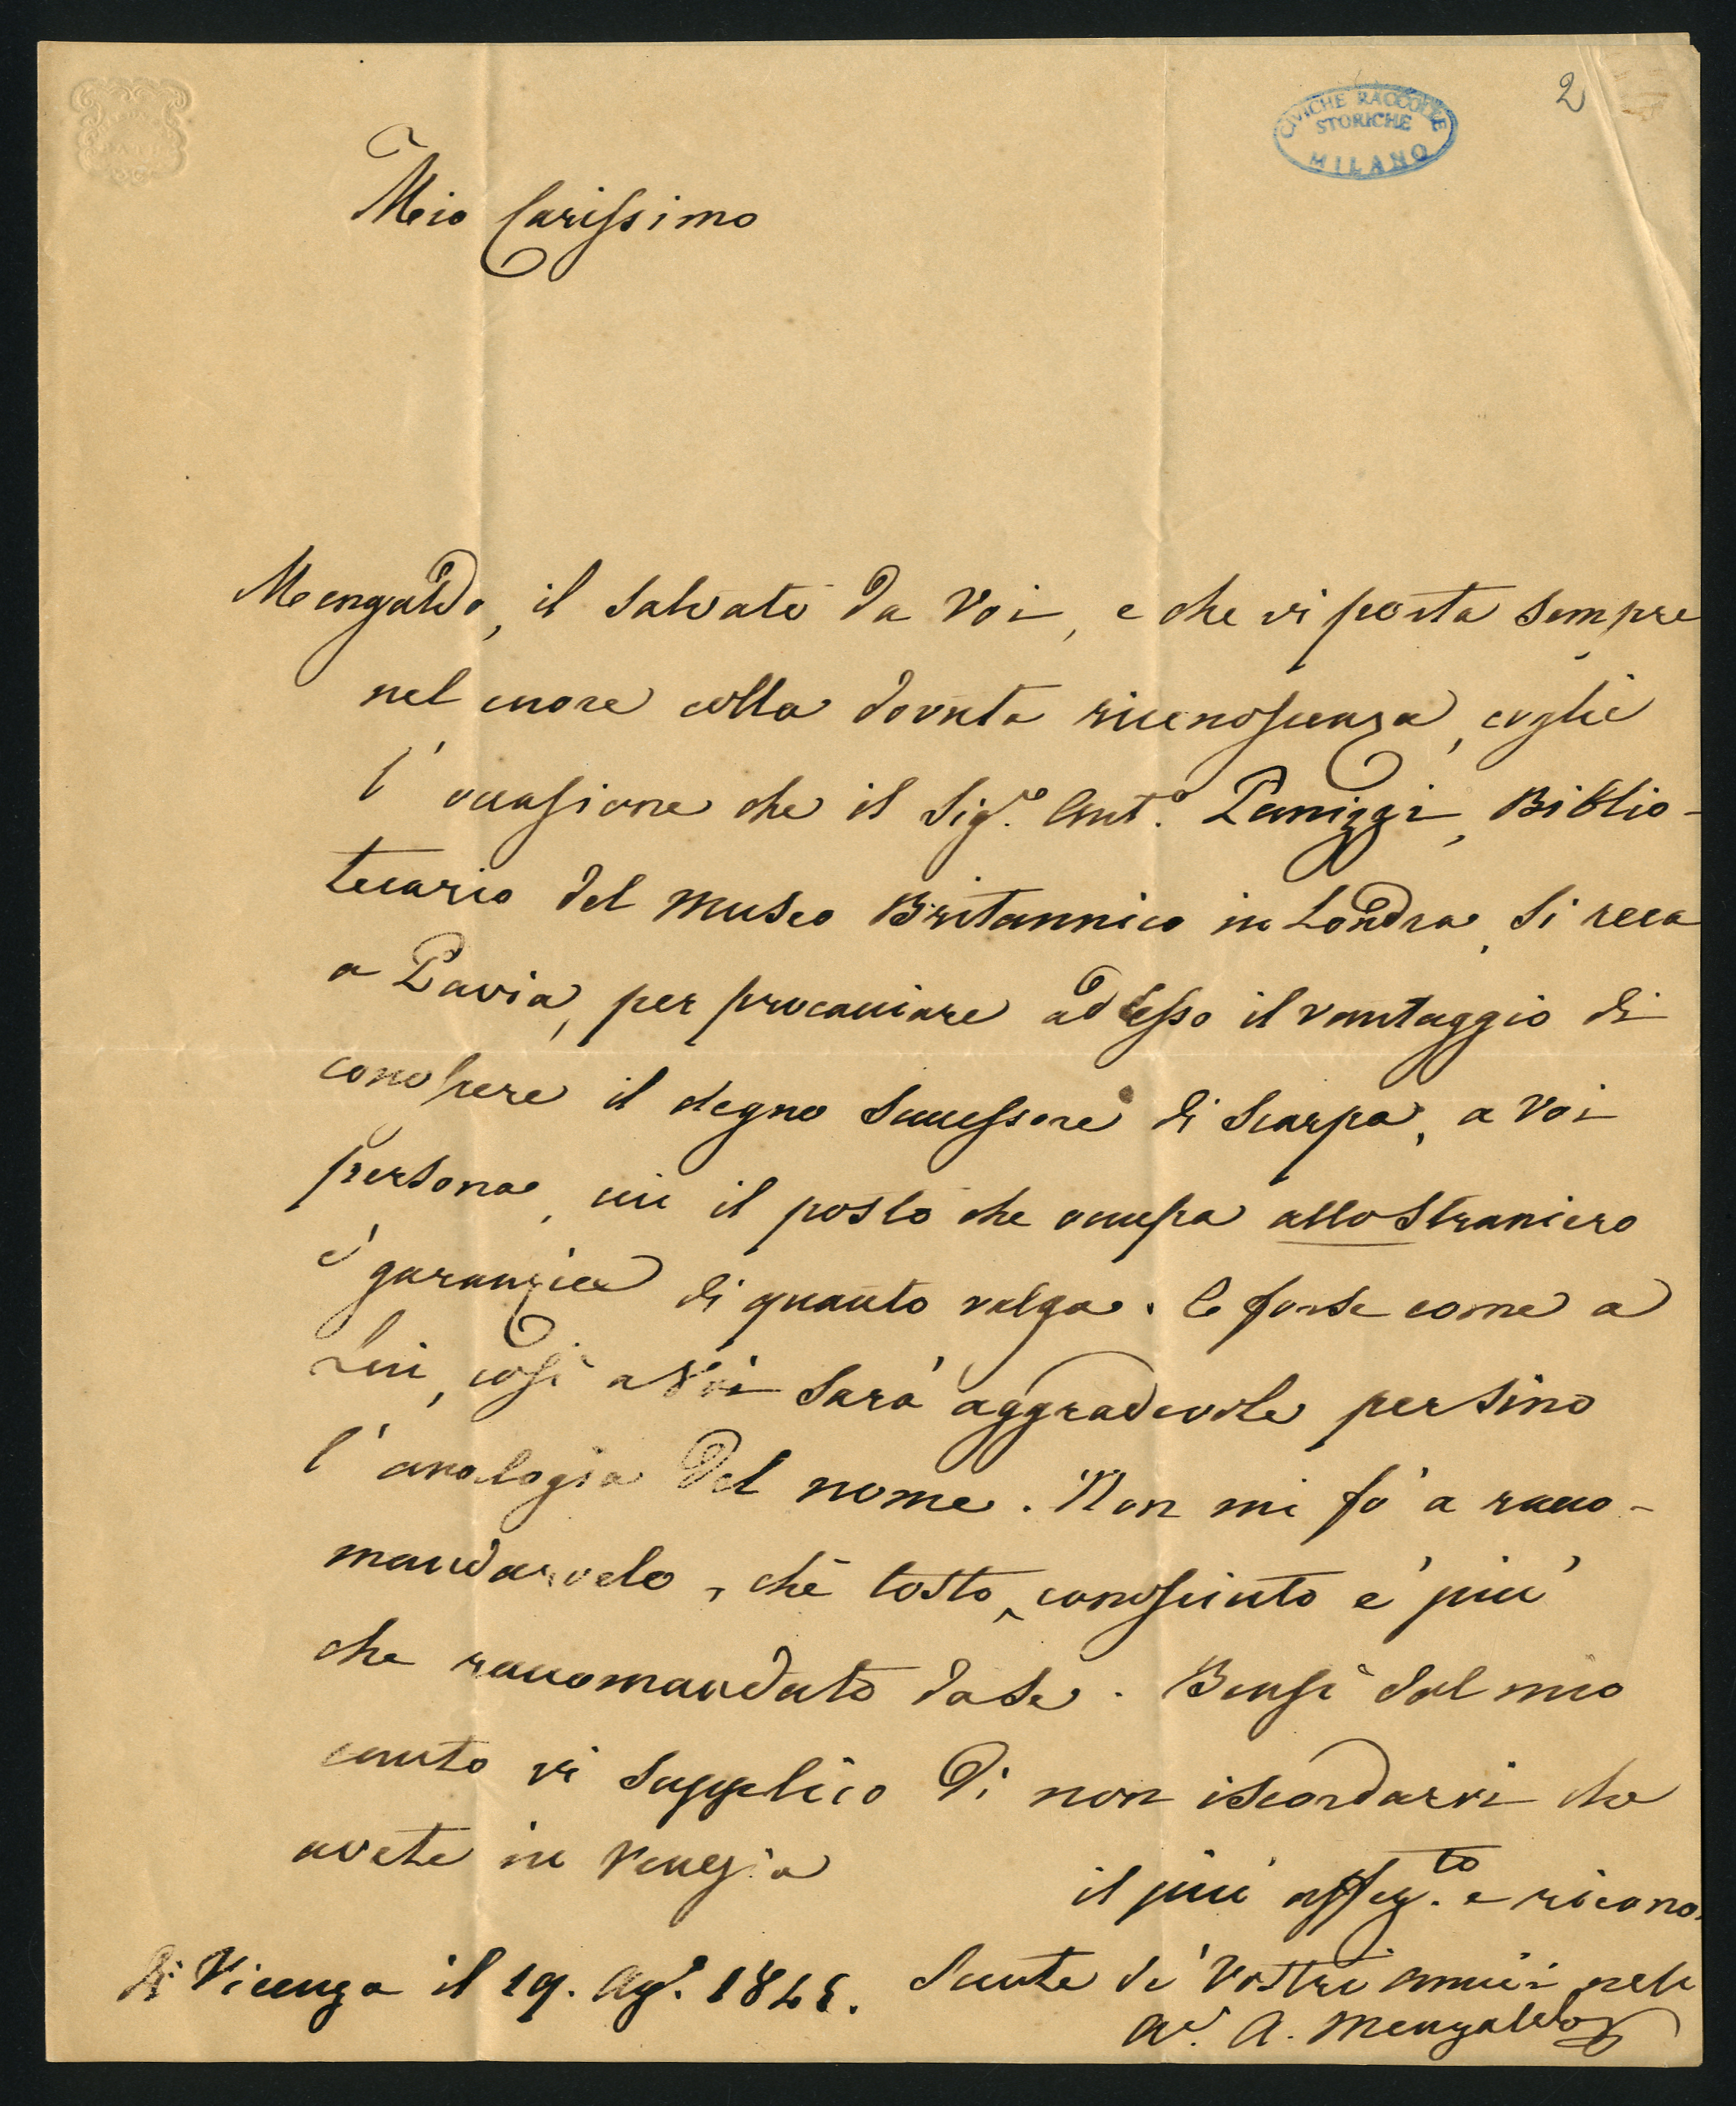 2
CIVICHE RACCOLTE
STORICHE
MILANO
Mio Carissimo
Mengaldo, il salvato da Voi, e che vi porta sempre
nel cuore colla dovuta riconoscenza, coglie
l'occasione che il Sig.r Ant.o Panizzi, Biblio-
tecario del Museo Britannico in Londra, si reca
a Pavia, per procacciare ad esso il vantaggio di
conoscere il degno successore di Scarpa, a Voi
persona, cui il posto che occupa allo Straniero
è garanzia di quanto valga. E forse come a
Lui, così a Voi sarà aggradevole persino
l'analogia del nome. Non mi fò a racco-
mandarvelo, chè tosto conosciuto è più
che raccomandato da se. Bensì dal mio
canto vi supplico di non iscordarvi che
avete in Venezia
il più affez.to e ricono-
scente de' vostri amici nell
Av. A. Mengaldo
Di Vicenza il 19. Ag.o